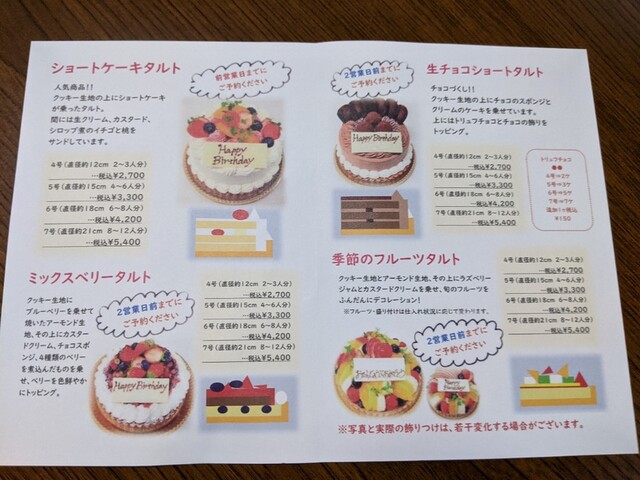 ショートケーキタルト
前営業日までに
ご予約ください
人気商品!!
クッキー生地の上にショートケーキ
が乗ったタルト。
間には生クリーム、カスタード、
シロップ煮のイチゴと桃を
サンドしています。
4号(直径約12cm 2~3人分)
…税込¥2,700
5号(直径約15cm 4~6人分)
…税込¥3,300
6号(直径約18cm 6~8人分)
…税込¥4,200
7号(直径約21cm 8~12人分)
…税込¥5,400
Happy
Birthday
生チョコショートタルト
2営業日前までに
ご予約ください
チョコづくし!!
クッキー生地の上にチョコのスポンジと
クリームのケーキを乗せています。
上にはトリュフチョコとチョコの飾りを
トッピング。
4号(直径約12cm 2~3人分)
…税込¥2,700
5号(直径約15cm 4~6人分)
…税込¥3,300
6号(直径約18cm 6~8人分)
…税込¥4,200
7号(直径約21cm 8~12人分)
…税込¥5,400
トリュフチョコ
4号⇒2ケ
5号⇒3ケ
6号⇒5ケ
7号⇒7ケ
追加1ヶ税込
¥150
Happy Birthday
ミックスベリータルト
クッキー生地に
ブルーベリーを乗せて
焼いたアーモンド生
地、その上にカスター
ドクリーム、チョコスポ
ンジ、4種類のベリー
を煮込んだものを乗
せ、ベリーを色鮮やか
にトッピング。
2営業日前までに
ご予約ください
4号(直径約12cm 2~3人分)
…税込¥2,700
5号(直径約15cm 4~6人分)
…税込¥3,300
6号(直径約18cm 6~8人分)
…税込¥4,200
7号(直径約21cm 8~12人分)
…税込¥5,400
Happy Birthday
季節のフルーツタルト
クッキー生地とアーモンド生地、その上にラズベリー
ジャムとカスタードクリームを乗せ、旬のフルーツを
ふんだんにデコレーション!
※フルーツ・盛り付けは仕入れ状況に応じて変わります。
2営業日前までに
ご予約ください
4号(直径約12cm 2~3人分)
…税込¥2,700
5号(直径約15cm 4~6人分)
…税込¥3,300
6号(直径約18cm 6~8人分)
…税込¥4,200
7号(直径約21cm 8~12人分)
…税込¥5,400
Happy
Birthday
※写真と実際の飾りつけは、若干変化する場合がございます。